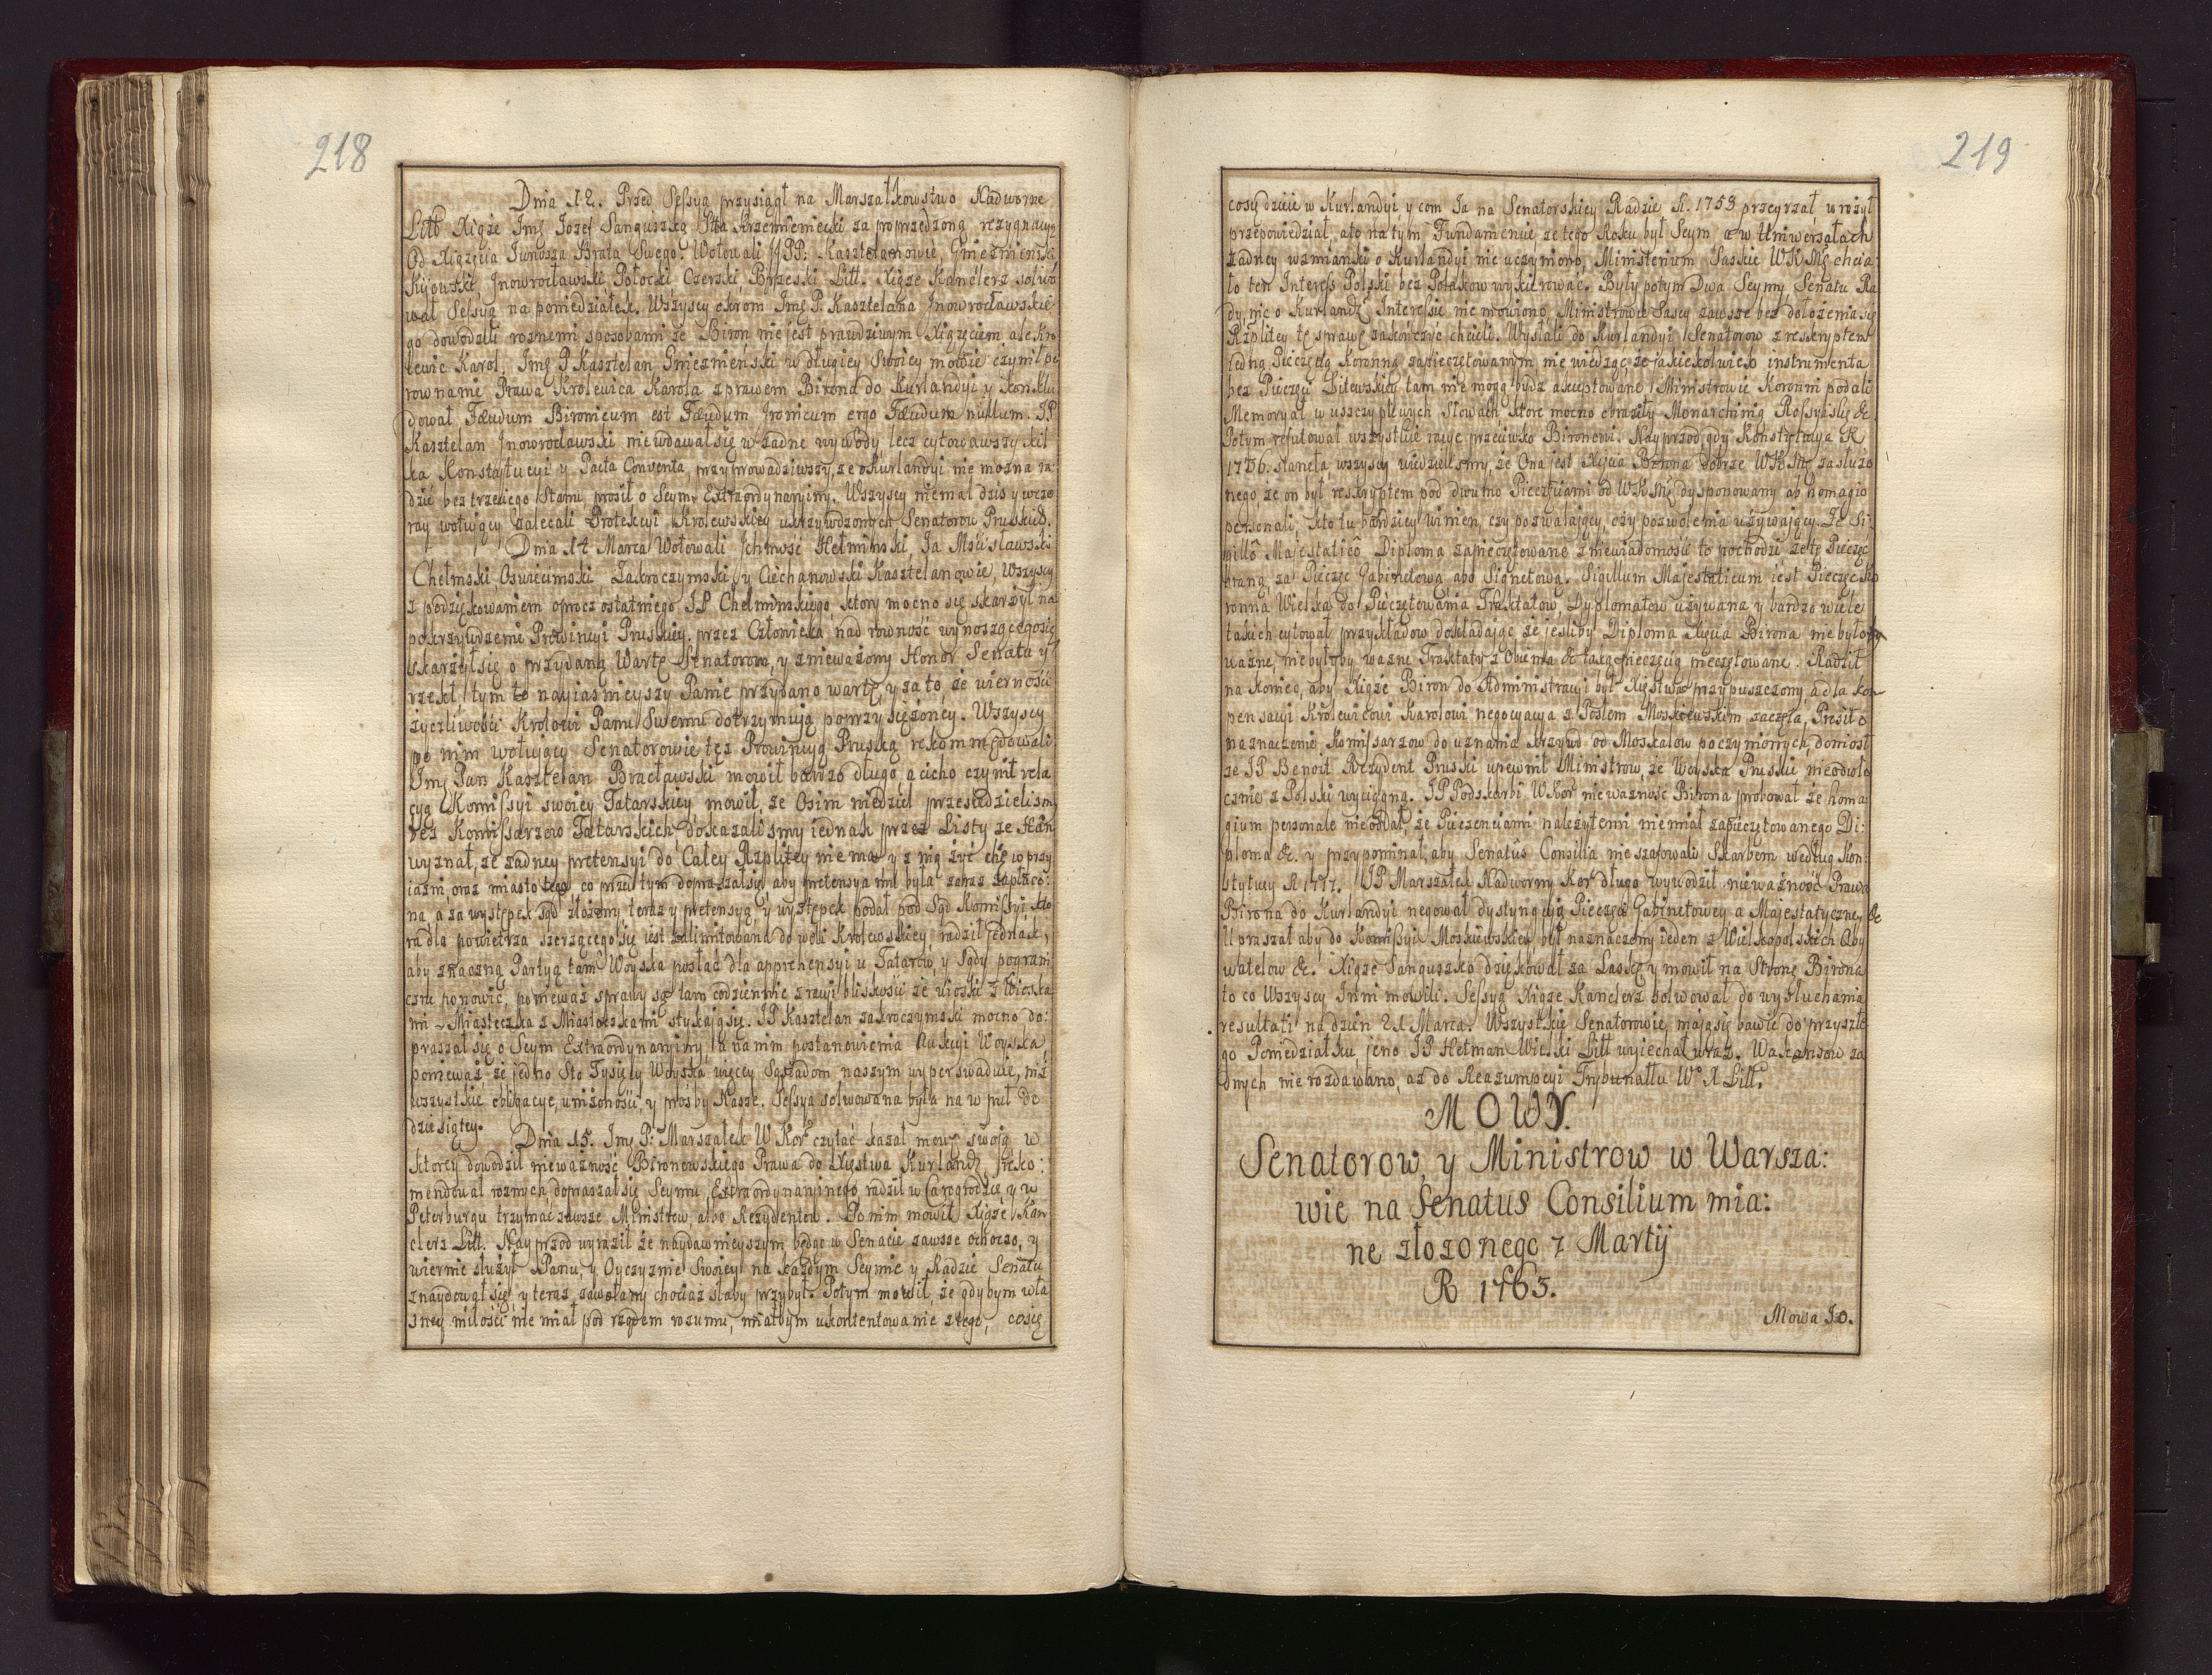 218
Dnia 12. Przed Sessyą przysiągł na Marszałkowstwo Nadworne
Litt Xiąże Jmć Jozef Sanguszko Stta Krzemieniecki za poprzedzoną rezygnacyą
Od Xiążęcia Junosza Brata Swego. Wotowali JPP: Kasztelanowie, Gnieznienski
Kijowski, Jnowrocławski Połocki Czerski, Brzeski Litt. Xiąże Kanclerz solwo
wał Sessyą na poniedziałek. Wszyscy okrom Jmć P. Kasztelana Jnowrocławskie
go dowodzili roznemi sposobami że Biron nie jest prawdziwym Xiążęciem ale Kro
lewic Karol, Jmć P Kasztelan Gnieznienski w długiey Swoiey mowie czynił po
rownanie Prawa Krolewica Karola z prawem Birona do Kurlandyi y konklu
dował Fæudum Bironicum est Fæudum Jronicum ergo Fæudum nullum. JP
Kasztelan Jnowrocławski niewdawał się w żadne wywody, lecz cytowawszy kil
ka Konstytucyi y Pacta Conventa, przyprowadziwszy, że o Kurlandyi nie mozna ra
dzić bez trzeciego Stanu, prosił o Seym Extraordynaryiny. Wszyscy niemal dziś y wczo
ray wotuiący zalecali Protekcyi Krolewskiey ukrzywdzonych Senatorow Pruskich.
Dnia 14 Marca Wotowali Jchmość Hełminski, Ja Mścisławski
Chełmski, Oswiecimski Zakroczymski, y Ciechanowski Kasztelanowie, Wszyscy
z podziękowaniem oprocz ostatniego JP Chełminskiego, ktory mocno się skarżył na
pokrzywdzenie Prowincyi Pruskiey, przez Człowieka nad rowność wynoszącego się
skarżył się o przydaną Wartę Senatorom, y znieważony Honor Senatu y
rzekł, tym to nayiasnieyszy Panie przydano wartę, y za to, że wierność
życzliwości Krolowi Panu Swemu dotrzymują poprzysiężoney. Wszyscy
po nim wotuiący Senatorowie tęż Prowincyą Pruską rekommędowali
Jmć Pan Kasztelan Bracławski mowił bardzo długo, a cicho czynił rela
cyą Komissyi swoiey Tatarskiey mowił, że Osim niedziel przesiedzielismy
bez Komissarzow Tatarskich dokazalismy iednak przez Listy że Han
wyznał, że żadney pretensyi do Całey Rzplitey nie ma y z nią żyć chce w przy
iazni oraz miasto tego co przed tym dopraszał się, aby pretensya mu była zaraz zapłaco:
na, a za występek sąd złożony teraz y pretensyą, y występek podał pod Sąd Komissyi kto
ra dla powietrza szerzącego się iest zalimitowana do woli Krolewskiey, radził jednak,
aby znaczną Partyą tam Woyska posłać dla apprehensyi u Tatarow, y Sądy pogrąni
czne ponowić, ponieważ sprawy są tam codziennie z racyi bliskości że wioski z Wioska
mi Miasteczka z Miasteczkami stykają się. JP Kasztelan zakroczymski mocno do:
praszał się o Seym Extraordynaryiny, a na nim postanowienia Aukcyi Woyska,
ponieważ, że jedno Sto Tysięcy Woyska więcey Sąsiadom naszym wyperswaduie, niż
wszystkie obligacye, uniżoność, y proźby Nasze. Sessya solwowana była na w puł do
dziesiątey.
Dnia 15. Jmć P: Marszałek W Kor czytać kazał mowę swoią w
ktorey dowodził nieważność Bironowskiego Prawa do Xięstwa Kurlandz reko:
mendował roznych, dopraszał się Seymu Extraordynaryinego, radził w Carogrodzie, y w
Peterburgu trzymać zawsze Ministrow, albo Rezydentow. Po nim mowił Xiąże Kan
clerz Litt. Nayprzod wyraził że naydawnieyszym będąc w Senacie zawsze ochoczo, y
wiernie służył Panu, y Oyczyznie Swoiey na każdym Seymie y Radzie Senatu
znaydował się, y teraz zawołany chociaż słaby przybył. Potym mowił, że gdybym wła
sney miłości nie miał pod rządem rozumu, miałbym ukontentowanie z tego, cosię
219
cosię dzieie w Kurlandyi y com Ja na Senatorskiey Radzie R. 1758 przeyrzał wrożył
przepowiedział, a to na tym Fundamencie że tego Roku był Seym a w Uniwersałach
żadney wzmianki o Kurlandyi nie uczyniono, Ministerium Saskie WKMć chcia
ło ten Interess Polski bez Polakow wykierować. Były potym Dwa Seymy Senatu Ra
dy, nic o Kurlandz Interessie nie mowiono, Ministrowie Sascy zawsze bez dołożenia się
Rzplitey tę sprawę zakończyć chcieli. Wysłali do Kurlandyi Senatorow z reskryptem
iedną Pieczęcią Koronną zapieczętowanym nie wiedząc że jakiekolwiek instrumenta
bez Pieczęci Litewskiey tam nie mogą bydz akceptowane, Ministrowie Koronni podali
Memoryał w uszczypliwych Słowach ktore mocno obraziły Monarchinią Rossyiską &c.
Potym refutował wszystkie racye przeciwko Bironowi. Nayprzod, gdy Konstytucya R
1736. stanęła wszyscy wiedzielismy, że Ona jest Xcia Birona dobrze WKMć zasłużo
nego że on był reskryptem pod dwuma Pieczęciami od WKMć dysponowany ab homagio
personali, kto tu bardziey winien, czy pozwalaiący, czy pozwolenia używaiący. Że Si:
gillô Majestaticô Diploma zapieczętowane z niewiadomości to pochodzi że tę Pieczęć
braną za Pieczęć Gabinetową abo Signetową. Sigillum Majestaticum iest Pieczęć Ko
ronna Wielka do Pieczętowania Traktatow, Dyplomatow używana y bardzo wiele
takich cytował przykładow dokładając, że jesliby Diploma Xcia Birona nie było
ważne, nie byłyby ważne Traktaty z Oliwina &c taką pieczęcią pieczętowane. Radził
na koniec, aby Xiąże Biron do Administracyi był Xięstwa przypuszczony a dla kom
pensacyi Krolewicowi Karolowi negocyacya z Posłem Moskiewskim zaczęta, Prosił o
naznaczenie Komissarzow do uznania krzywd od Moskalow poczynionych, doniosł
że JP Benoit Rezydent Pruski upewnił Ministrow, że Woyska Pruskie nieodwło
cznie z Polski wyciągną. JP Podskarbi WKor nieważność Birona probował że homa
gium personale nieoddał, że Pieczęciami należytemi nie miał zapieczętowanego Di:
ploma &c. y przypominał, aby Senatûs Consilia nie szafowali Skarbem według Kon:
stytucyi R 1717. JP Marszałek Nadworny Kor długo wywodził nieważność Prawa
Birona do Kurlandyi negował dystynkcyą Pieczęci Gabinetowey, a Majestatyczney &c
Upraszał aby do Komissyi Moskiewskiey był naznaczony ieden z Wielkopolskich Oby
watelow &c. Xiąże Sanguszko dziękował za Laskę y mowił na Stronę Birona
to co Wszyscy Jnni mowili. Sessyą Xiąże Kanclerz solwował do wysłuchania
resultati na dzień 21 Marca. Wszystkie Senatorowie, mają się bawić do przyszłe
go Poniedziałku jeno JP Hetman Wielki Litt wyiechał wraz. Wakansow ża
dnych nie rozdawano, aż do Reasumpcyi Trybunału W. X Litt.
MOWY.
Senatorow, y Ministrow w Warsza:
wie na Senatus Consilium mia:
ne złożonego 7 Martij
R 1763.
Mowa Jo.